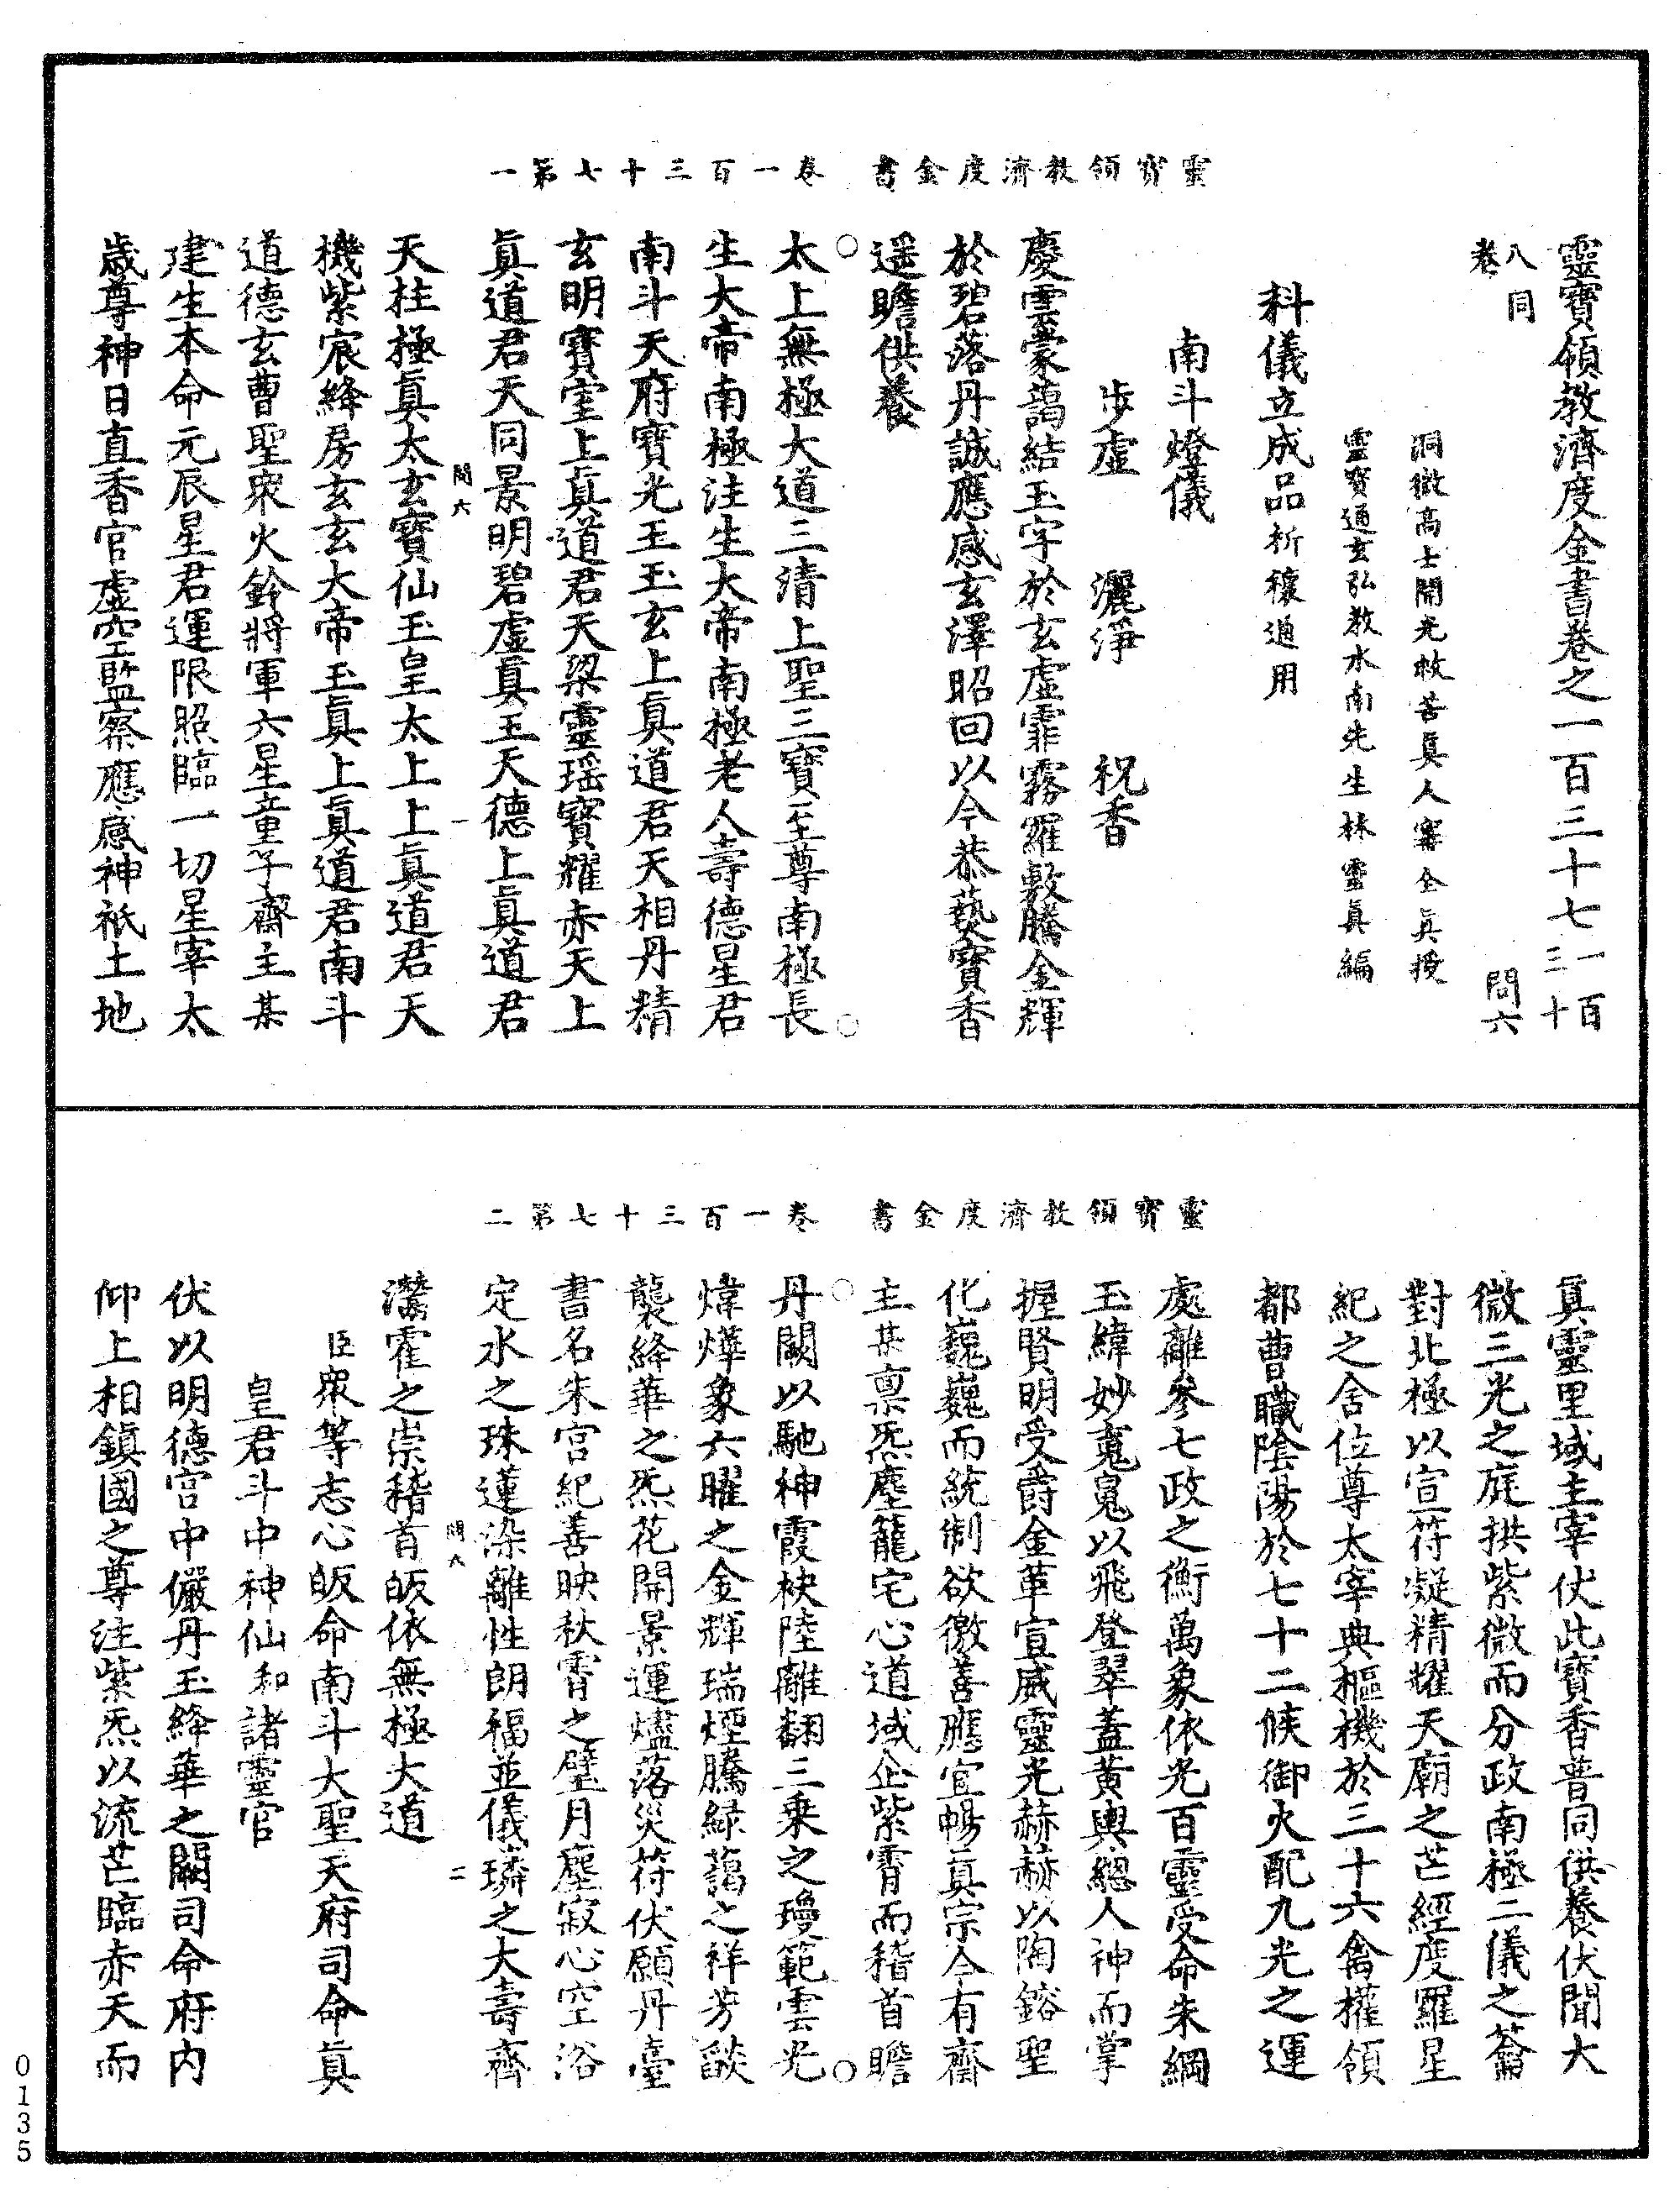 靈寶領教濟度金書卷之一百三十七 一百三十
八同卷 問六
洞微高士開光救苦眞人甯全眞授
靈寶通玄弘教水南先生林靈眞編
科儀立成品 祈禳通用
南斗燈儀
步虛 灑淨 祝香
慶雲蒙藹結玉字於玄虛霏霧羅敷騰金輝
於碧落丹誠應感玄澤昭回以今恭爇寶香
遥瞻供養
靈寶領教濟度金書 卷一百三十七第一
太上無極大道三清上聖三寶至尊南極長
生大帝南極注生大帝南極老人壽德星君
南斗天府寶光玉玉玄上眞道君天相丹精
玄明寶室上眞道君天梁靈瑶寶耀赤天上
眞道君天同景明碧虛眞王天德上眞道君
問六 一
天柱極眞太玄寶仙玉皇太上上眞道君天
機紫宸絳房玄玄大帝玉眞上眞道君南斗
道德玄曹聖衆火鈴將軍六星童子齋主某
建生本命元辰星君運限照臨一切星宰太
歲尊神日直香官虛空監察應感神祇土地
眞靈里域主宰伏此寶香普同供養伏聞大
微三光之庭拱紫微而分政南極二儀之籥
對北極以宣符凝精耀天廟之芒經度羅星
紀之舍位尊太宰典樞機於三十六禽權領
都曹職陰陽於七十二候御火配九光之運
處離參七政之衡萬象依光百靈受命朱綱
玉緯妙寬冕以飛登翠蓋黃輿總人神而掌
握賢明受爵金革宣威靈光赫赫以陶鎔聖
化巍巍而統制欲徼善應宜暢眞宗今有齋
主某禀炁塵籠宅心道域企紫霄而稽首瞻
靈寶領教濟度金書 卷一百三十七第二
丹闕以馳神霞柍陸離翻三乗之瓊範雲光
煒燁象六曜之金輝瑞煙騰緑藹之祥芳燄
襲絳華之炁花開景運燼落災符伏願丹臺
書名朱宮紀善映秋霄之璧月塵寂心空浴
定水之珠蓮染離性朗福並儀璘之大壽齊
問六 二
灊霍之崇稽首皈依無極大道
臣衆等志心皈命南斗大聖天府司命眞
皇君斗中神仙和諸靈官
伏以明德宮中儼丹玉絳華之闕司命府内
仰上相鎮國之尊注紫炁以流芒臨赤天而
0135